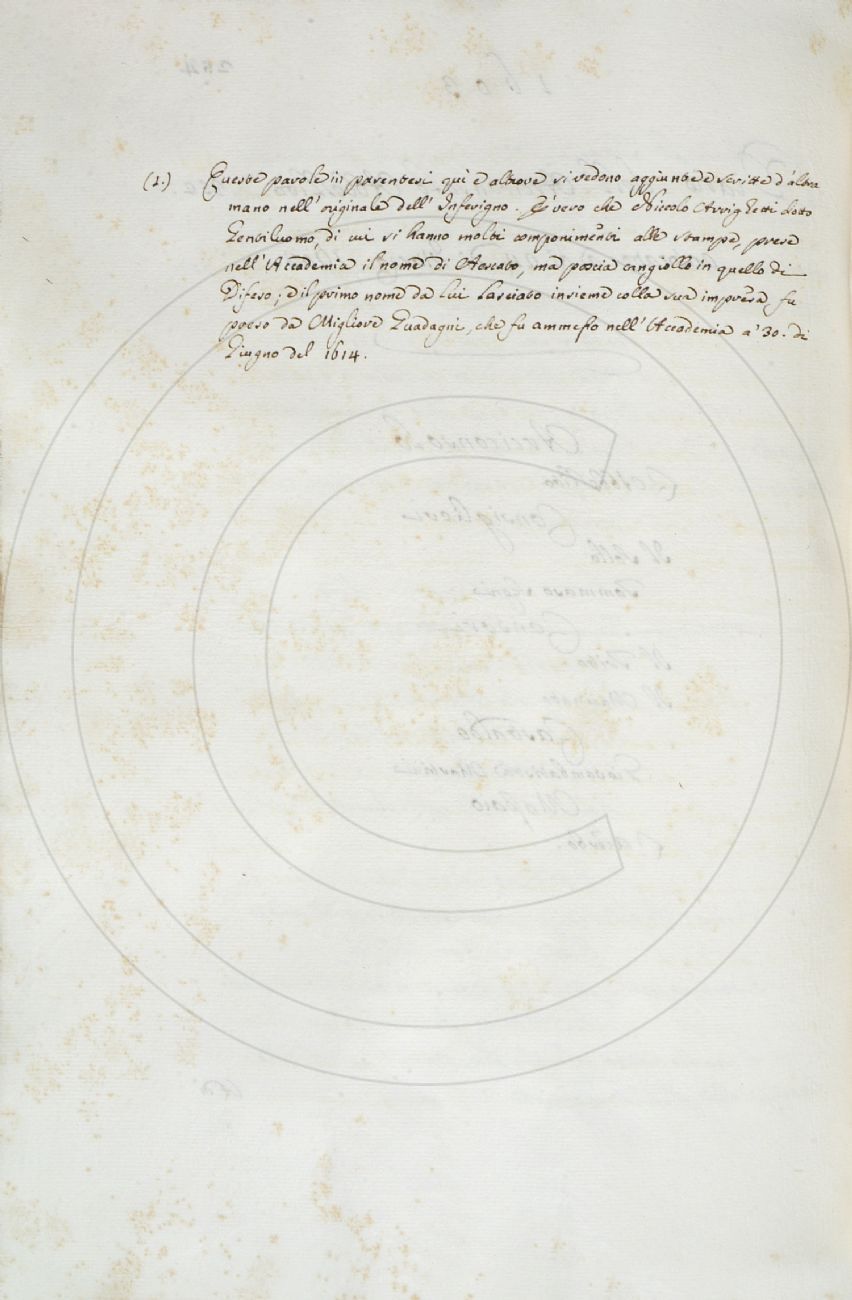 (1.) Queste parole in parentesi quì e altrove si vedono aggiunte e scritte d'altra
mano nell'originale dell'Inferigno. È vero che Niccolo Arrighetti dotto
Gentiluomo, di cui si hanno molti componimenti alle stampe, prese
nell'Accademia il nome di, ma poscia cangiollo in quello di
Difeso; e il primo nome da lui lasciato insieme colla sua impresa, fu
preso da Migliore Guadagni, che fu ammesso nell'Accademia a' 30. di
Giugno del 1614.